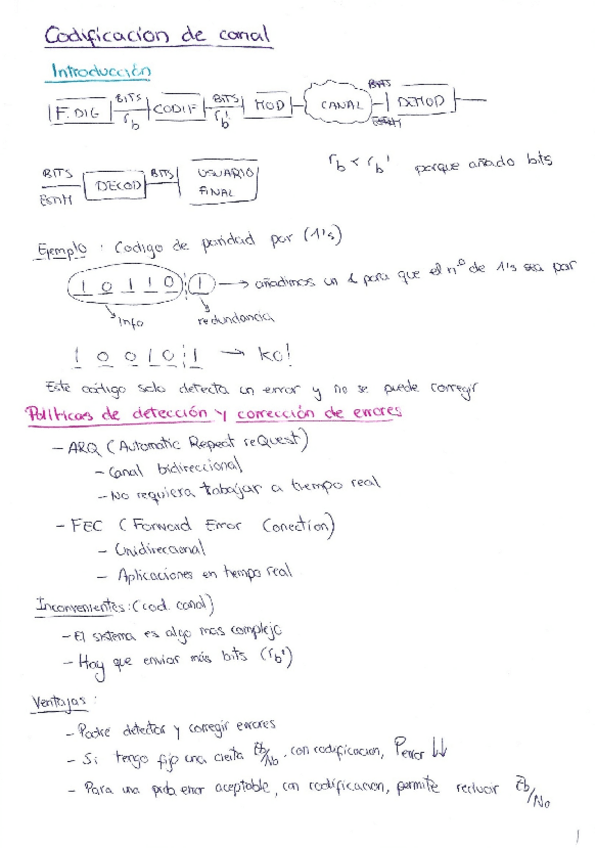 Codificacion de canal
Introducción
F. DIG BITS rb CODIF BITS rb' MOD CANAL BITS DEMOD
BITS ESTIM DECOD BITS USUARIO FINAL
rb < rb' porque añado bits
Ejemplo: Codigo de paridad par (1's)
1 0 1 1 0 1 → añadimos un 1 para que el nº de 1's sea par
info redundancia
1 0 0 1 0 1 → KO!
Este código solo detecta un error y no se puede corregir
Políticas de detección y corrección de errores
- ARQ (Automatic Repeat reQuest)
- Canal bidireccional
- No requiera trabajar a tiempo real
- FEC (Forward Error Correction)
- Unidireccional
- Aplicaciones en tiempo real
Inconvenientes: (cod. canal)
- El sistema es algo mas complejo
- Hay que enviar más bits (rb')
Ventajas:
- Podré detectar y corregir errores
- Si tengo fijo una cierta Eb/No, con codificacion, Perror ↓↓
- Para una prob error aceptable, con codificacion, permite reducir Eb/No
1